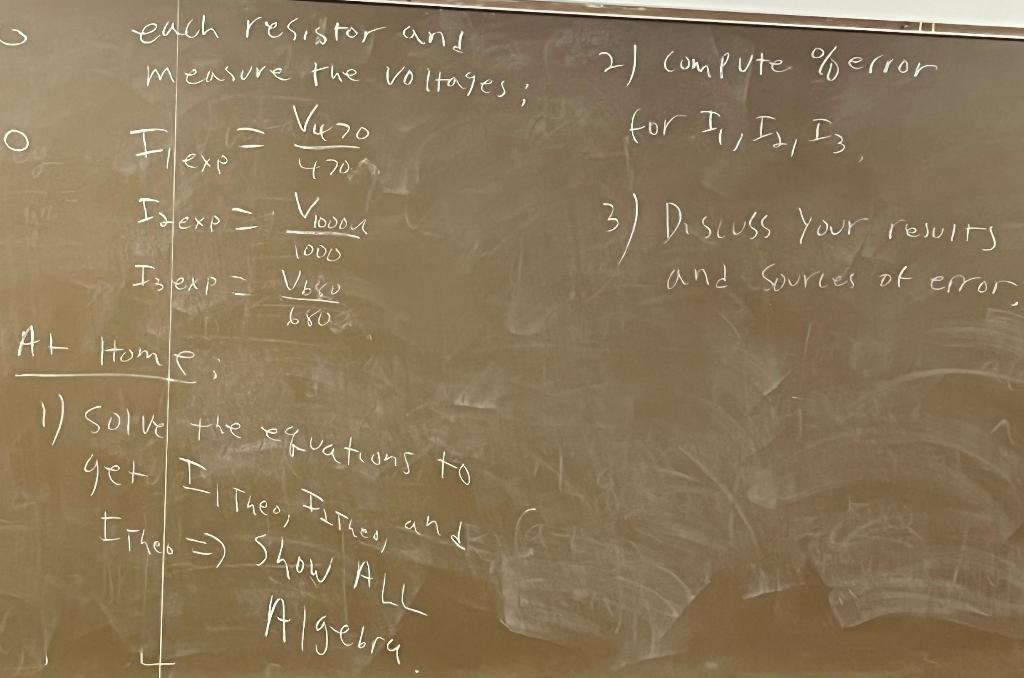 each resistor and
measure the voltages;
I1 exp = V470 / 470
I2 exp = V1000Ω / 1000
I3 exp = V680 / 680
At Home;
1) Solve the equations to
get I1Theo, I2Theo, and
ITheo => Show ALL
Algebra.
2) compute % error
for I1, I2, I3.
3) Discuss your results
and sources of error.